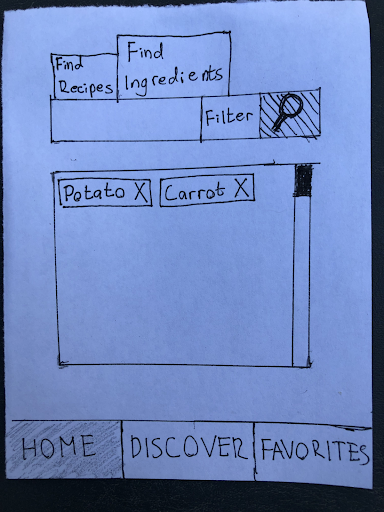 Find
Recipes
Find
Ingredients
Filter
Potato X
Carrot X
HOME
DISCOVER
FAVORITES